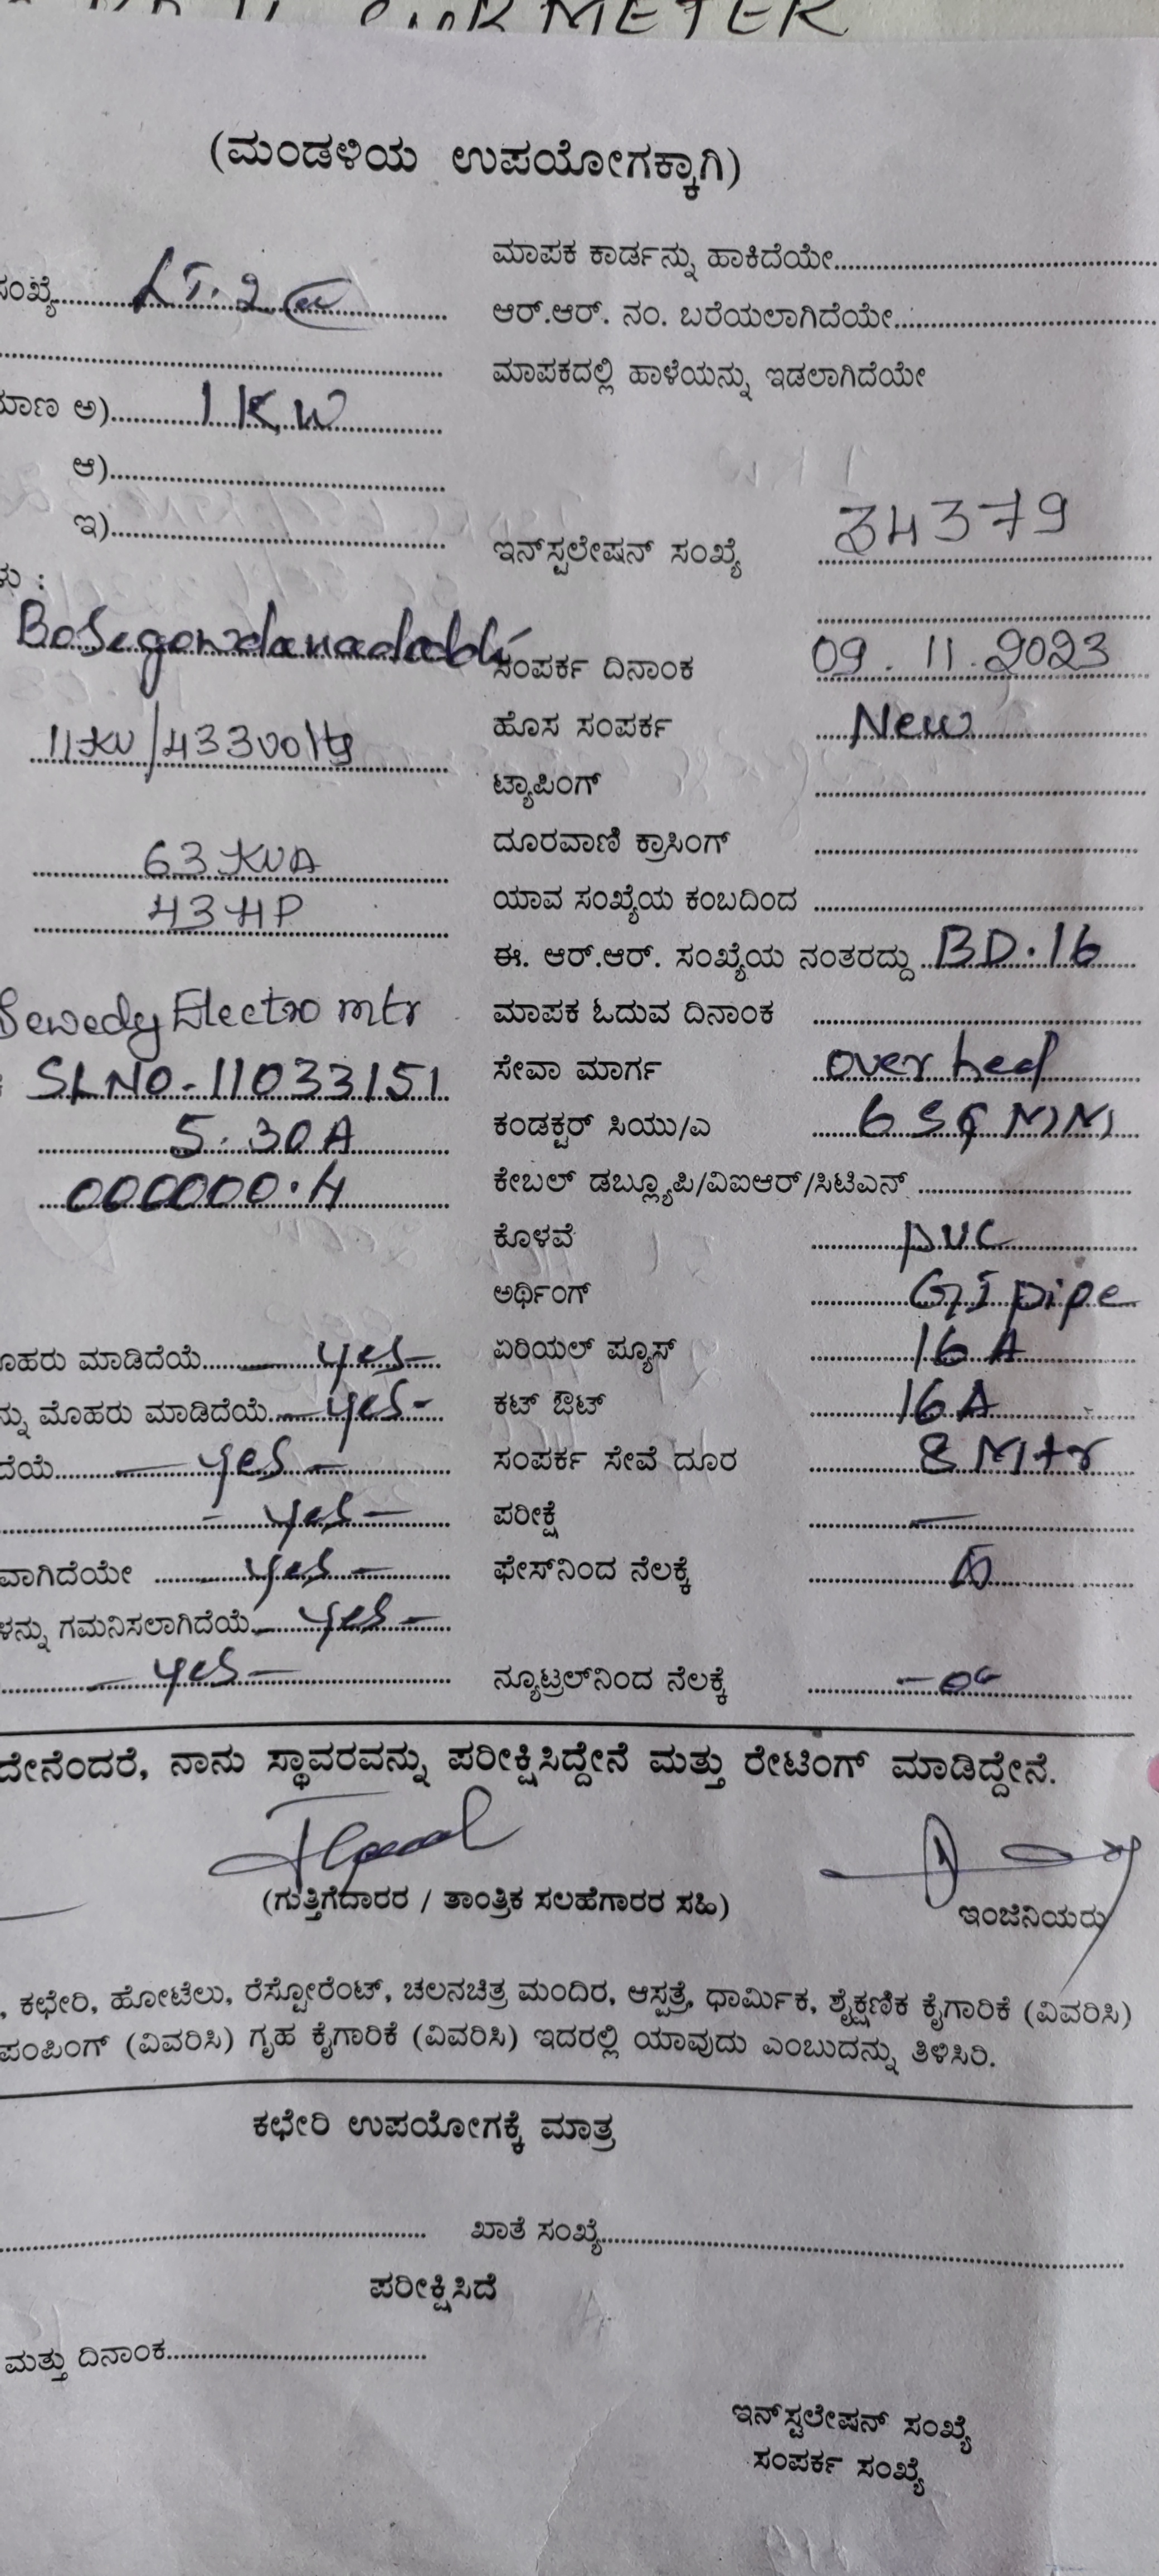 METER
(ಮಂಡಳಿಯ ಉಪಯೋಗಕ್ಕಾಗಿ)
ಮಾಪಕ ಕಾರ್ಡನ್ನು ಹಾಕಿದೆಯೇ
ಸಂಖ್ಯೆ LT.2 ಆರ್.ಆರ್. ನಂ. ಬರೆಯಲಾಗಿದೆಯೇ
ಮಾಪಕದಲ್ಲಿ ಹಾಳೆಯನ್ನು ಇಡಲಾಗಿದೆಯೇ
ಅ) 1 KW
ಆ)
ಇ)
ಇನ್‌ಸ್ಟಲೇಷನ್ ಸಂಖ್ಯೆ 34379
ಸಂಪರ್ಕ ದಿನಾಂಕ 09.11.2023
11KV/433volts ಹೊಸ ಸಂಪರ್ಕ New
ಟ್ಯಾಪಿಂಗ್
63 KVA ದೂರವಾಣಿ ಕ್ರಾಸಿಂಗ್
43 HP ಯಾವ ಸಂಖ್ಯೆಯ ಕಂಬದಿಂದ
ಈ. ಆರ್.ಆರ್. ಸಂಖ್ಯೆಯ ನಂತರದ್ದು BD.16
Electro mtr ಮಾಪಕ ಓದುವ ದಿನಾಂಕ
SLNO-11033151 ಸೇವಾ ಮಾರ್ಗ over hed
5.30A ಕಂಡಕ್ಟರ್ ಸಿಯು/ಎ 6 SQ MM
000000.4 ಕೇಬಲ್ ಡಬ್ಲ್ಯೂಪಿ/ವಿಐಆರ್/ಸಿಟಿಎನ್
ಕೊಳವೆ PVC
ಅರ್ಥಿಂಗ್ GI pipe
ಮಾಡಿದೆಯೆ yes ಏರಿಯಲ್ ಪ್ಯೂಸ್ 16 A
ಮೊಹರು ಮಾಡಿದೆಯೆ yes ಕಟ್ ಔಟ್ 16A
yes ಸಂಪರ್ಕ ಸೇವೆ ದೂರ 8 Mtr
yes ಪರೀಕ್ಷೆ —
yes ಫೇಸ್‌ನಿಂದ ನೆಲಕ್ಕೆ
ಗಮನಿಸಲಾಗಿದೆಯೆ yes
yes ನ್ಯೂಟ್ರಲ್‌ನಿಂದ ನೆಲಕ್ಕೆ
ನಾನು ಸ್ಥಾವರವನ್ನು ಪರೀಕ್ಷಿಸಿದ್ದೇನೆ ಮತ್ತು ರೇಟಿಂಗ್ ಮಾಡಿದ್ದೇನೆ.
(ಗುತ್ತಿಗೆದಾರರ / ತಾಂತ್ರಿಕ ಸಲಹೆಗಾರರ ಸಹಿ) ಇಂಜಿನಿಯರು
, ಕಛೇರಿ, ಹೋಟೆಲು, ರೆಸ್ಟೋರೆಂಟ್, ಚಲನಚಿತ್ರ ಮಂದಿರ, ಆಸ್ಪತ್ರೆ, ಧಾರ್ಮಿಕ, ಶೈಕ್ಷಣಿಕ ಕೈಗಾರಿಕೆ (ವಿವರಿಸಿ)
ಪಂಪಿಂಗ್ (ವಿವರಿಸಿ) ಗೃಹ ಕೈಗಾರಿಕೆ (ವಿವರಿಸಿ) ಇದರಲ್ಲಿ ಯಾವುದು ಎಂಬುದನ್ನು ತಿಳಿಸಿರಿ.
ಕಛೇರಿ ಉಪಯೋಗಕ್ಕೆ ಮಾತ್ರ
ಖಾತೆ ಸಂಖ್ಯೆ
ಪರೀಕ್ಷಿಸಿದೆ
ಮತ್ತು ದಿನಾಂಕ
ಇನ್‌ಸ್ಟಲೇಷನ್ ಸಂಖ್ಯೆ
ಸಂಪರ್ಕ ಸಂಖ್ಯೆ